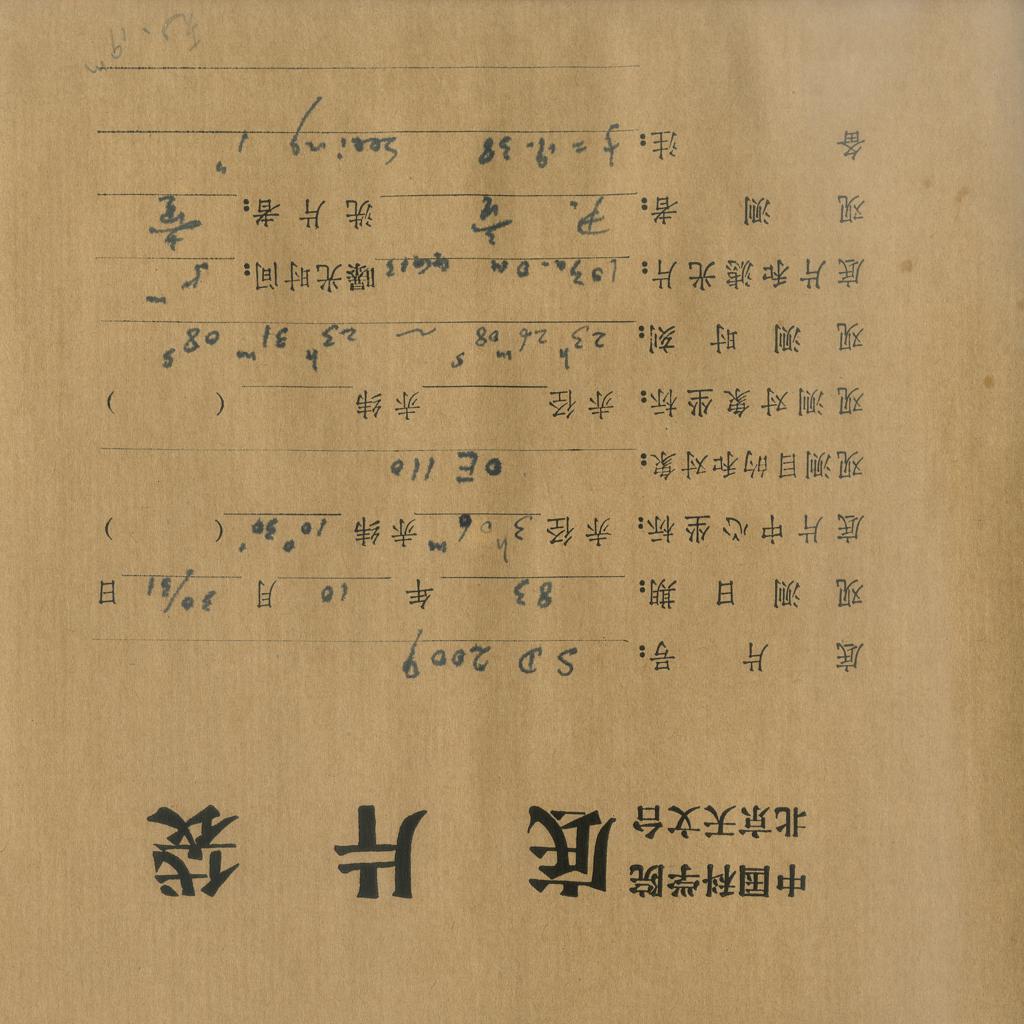 中国科学院
北京天文台
底片袋
底片号: SD 2009
观测日期: 83 年 10 月 30/31 日
底片中心坐标: 赤径 3h06m 赤纬 10°30' ( )
观测目的和对象: OE 110
观测对象坐标: 赤径 赤纬 ( )
观测时刻: 23h26m08s ~ 23h31m08s
底片和滤光片: 103a-O 曝光时间: 5m
观测者: 洗片者:
备注: f = 9.38 Seeing 1"